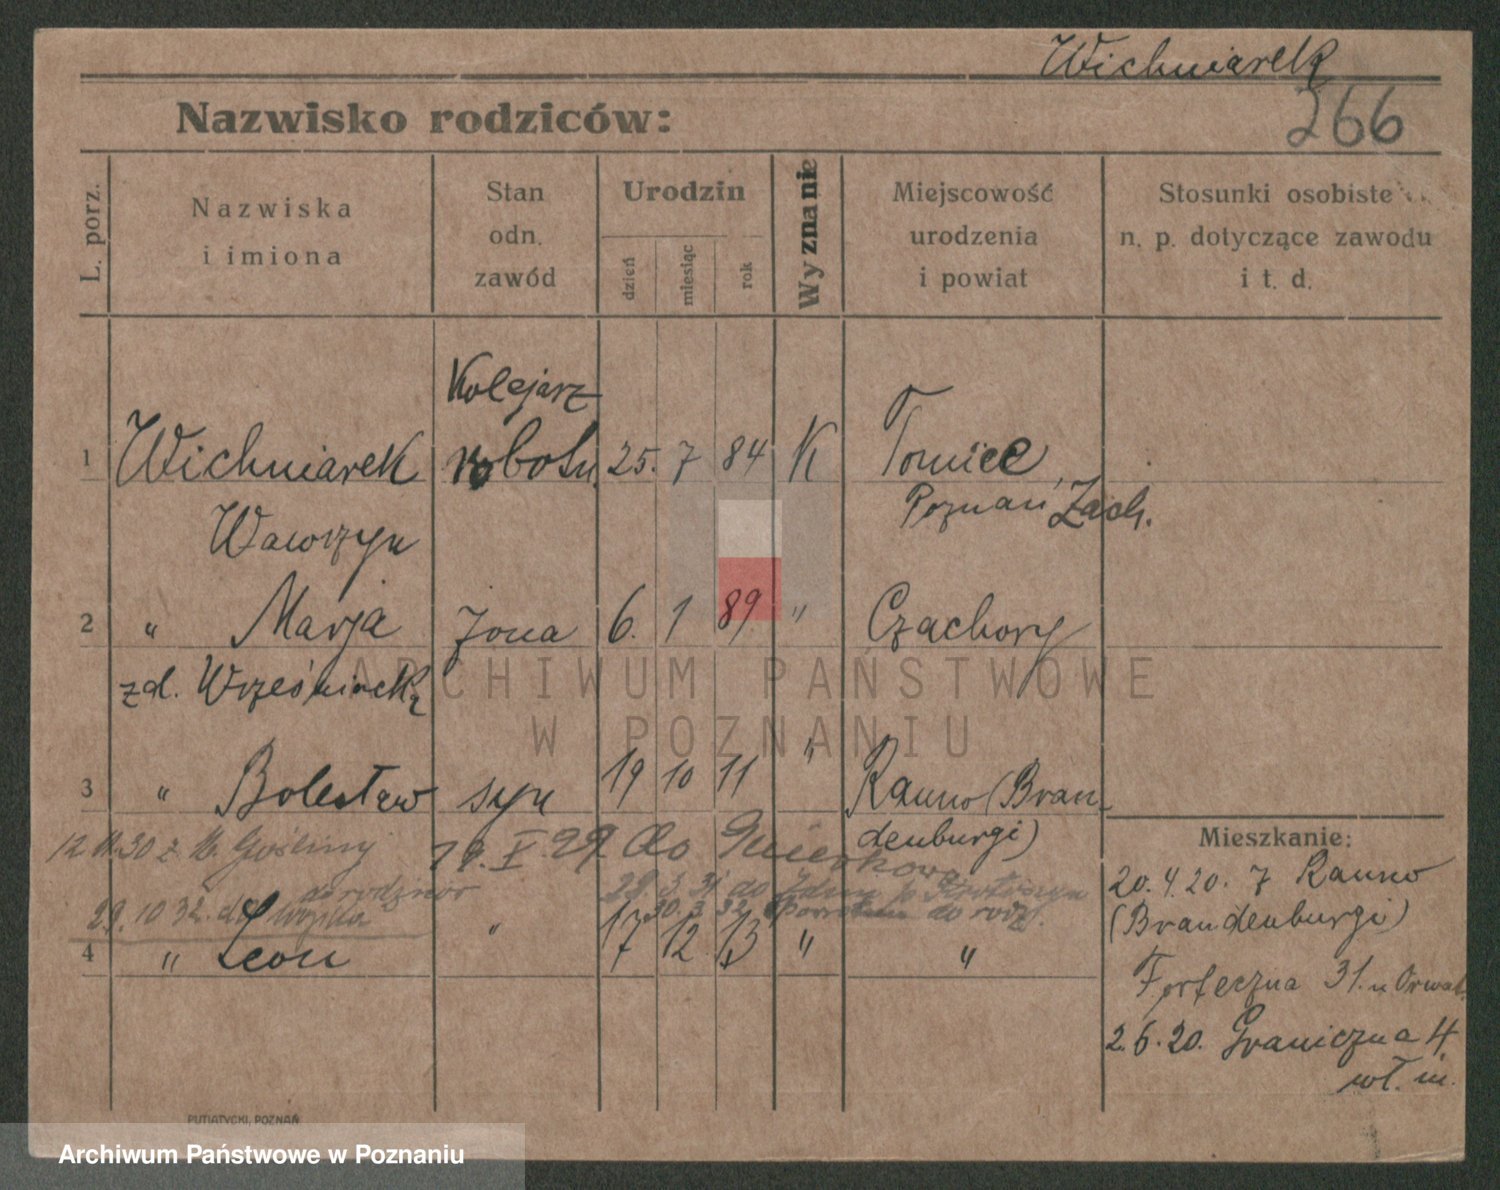 Wichniarek
266
Nazwisko rodziców:
L. porz.
Nazwiska
i imiona
Stan
odn.
zawód
Urodzin
dzień
miesiąc
rok
Wyznanie
Miejscowość
urodzenia
i powiat
Stosunki osobiste
n. p. dotyczące zawodu
i t. d.
Kolejarz
1 Wichniarek robotn. 25. 7 84 K
Wawrzyn
Poznań, Zach.
2 " Marja żona 6. 1 89 " Czachory
zd. Wrześniarek
ARCHIWUM PAŃSTWOWE
W POZNANIU
3 " Bolesław syn 19 10 11 " Rauno (Bran-
denburgi)
12 11.30 z M. Gośliny
19. X. 29. do
28. 3. 31 do
do rodziców
29. 10 32. do wojska
30. 3. 32 do rodz.
4 " Leon " 17 12 13 " "
Mieszkanie:
20. 4. 20. z Rauno
(Brandenburgi)
Forteczna 31. u
2. 6. 20. Graniczna 4
wł. m.
PUTIATYCKI, POZNAŃ
Archiwum Państwowe w Poznaniu